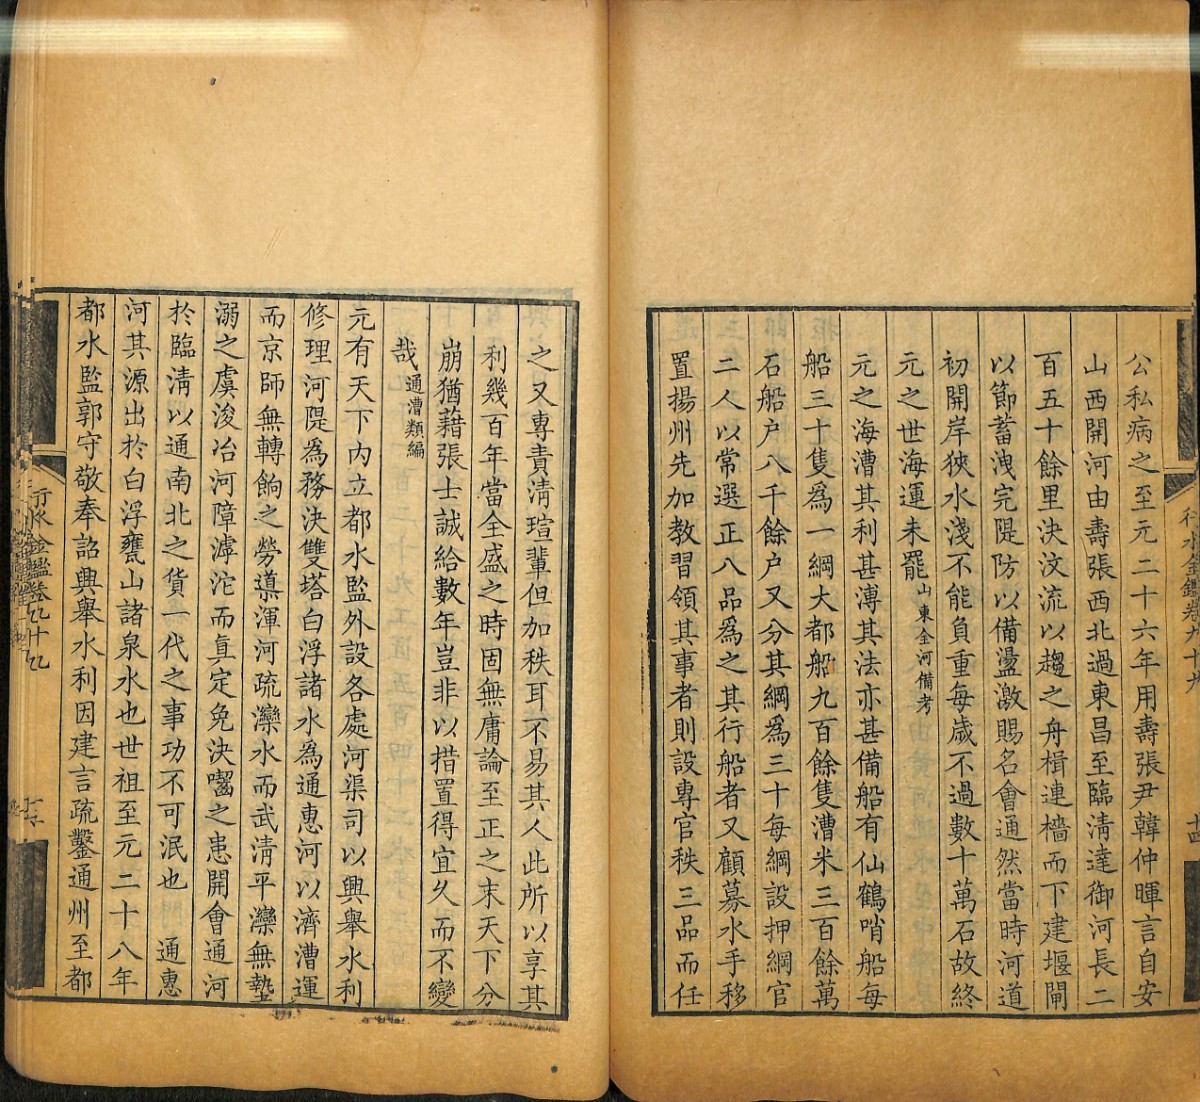 公私病之至元二十六年用壽張尹韓仲暉言自安
山西開河由壽張西北過東昌至臨清達御河長二
百五十餘里決汶流以趨之舟楫連檣而下建堰閘
以節蓄洩完隄防以備盪激賜名會通然當時河道
初開岸狹水淺不能負重每歲不過數十萬石故終
元之世海運未罷山東全河備考
元之海漕其利甚溥其法亦甚備船有仙鶴哨船每
船三十隻爲一綱大都船九百餘隻漕米三百餘萬
石船户八千餘户又分其綱爲三十每綱設押綱官
二人以常選正八品爲之其行船者又顧募水手移
置揚州先加教習領其事者則設專官秩三品而任
之又專責清瑄輩但加秩耳不易其人此所以享其
利幾百年當全盛之時固無庸論至正之末天下分
崩猶藉張士誠給數年豈非以措置得宜久而不變
哉通漕類編
元有天下內立都水監外設各處河渠司以興舉水利
修理河隄爲務決雙塔白浮諸水為通惠河以濟漕運
而京師無轉餉之勞導渾河疏灤水而武清平灤無墊
溺之虞浚冶河障滹沱而真定免決囓之患開會通河
於臨清以通南北之貨一代之事功不可泯也 通惠
河其源出於白浮甕山諸泉水也世祖至元二十八年
都水監郭守敬奉詔興舉水利因建言疏鑿通州至都
行水金鑑卷九十九
十四